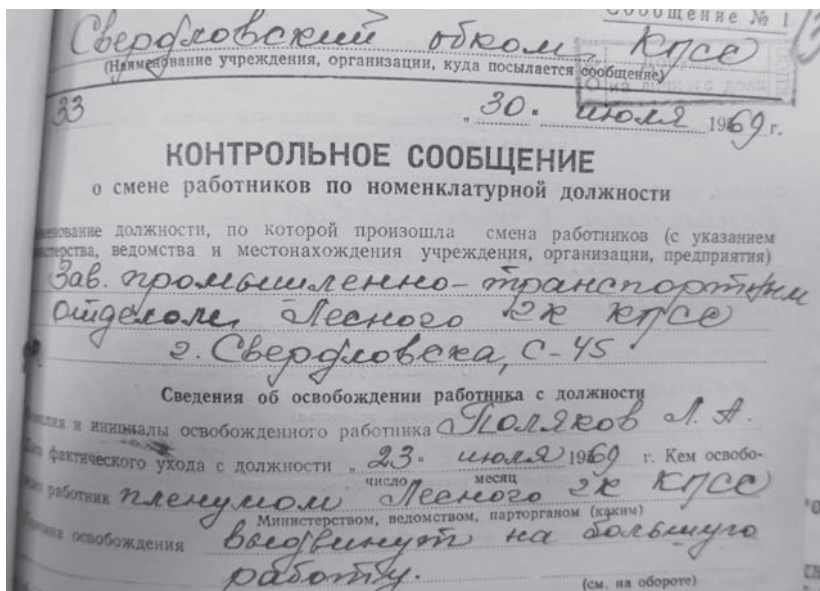 Сообщение № 1
Свердловский обком КПСС
(Наименование учреждения, организации, куда посылается сообщение)
33
„30." июля 1969 г.
КОНТРОЛЬНОЕ СООБЩЕНИЕ
о смене работников по номенклатурной должности
нование должности, по которой произошла смена работников (с указанием
стерства, ведомства и местонахождения учреждения, организации, предприятия)
Зав. промышленно-транспортным
отделом Лесного ГК КПСС
г. Свердловска, С-45
Сведения об освобождении работника с должности
милия и инициалы освобожденного работника Поляков Л. А.
фактического ухода с должности „23." июля 1969 г. Кем освобо-
число месяц
работник пленумом Лесного ГК КПСС
Министерством, ведомством, парторганом (каким)
освобождения выдвинут на большую
работу.
(см. на обороте)